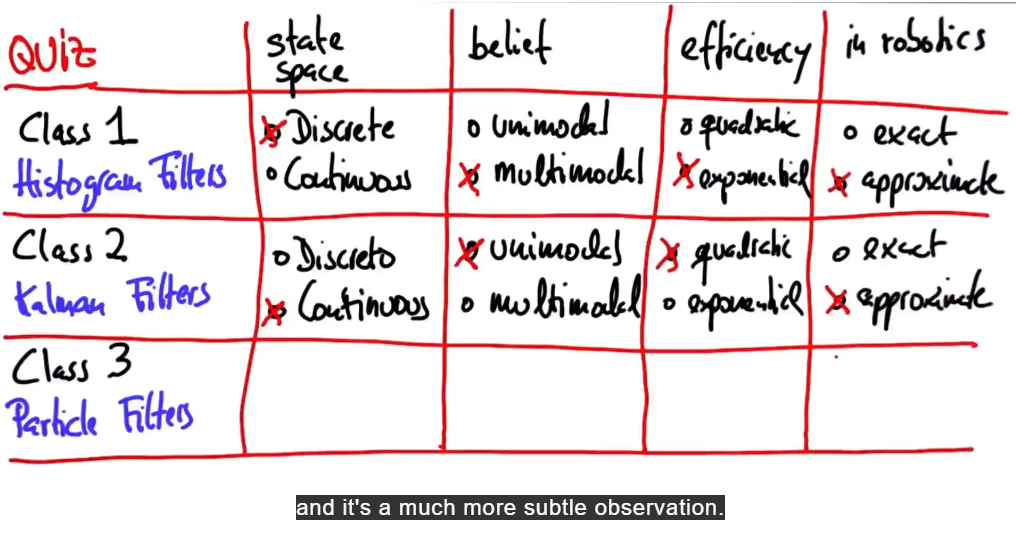 QUIZ
state space
belief
efficiency
in robotics
Class 1
Histogram Filters
Discrete
Continuous
unimodal
multimodal
quadratic
exponential
exact
approximate
Class 2
Kalman Filters
Discrete
Continuous
unimodal
multimodal
quadratic
exponential
exact
approximate
Class 3
Particle Filters
and it's a much more subtle observation.